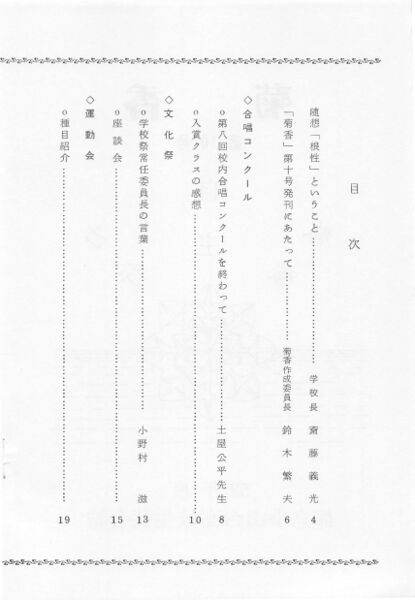 目次
随想「根性」ということ……………………学校長 斎藤義光 4
「菊香」第十号発刊にあたって……………菊香作成委員長 鈴木繁夫 6
◇合唱コンクール
o第八回校内合唱コンクールを終わって……………土屋公平先生 8
o入賞クラスの感想……………………………………10
◇文化祭
o学校祭常任委員長の言葉……………………小野村 滋 13
o座談会……………………………………………15
◇運動会
o種目紹介…………………………………………19